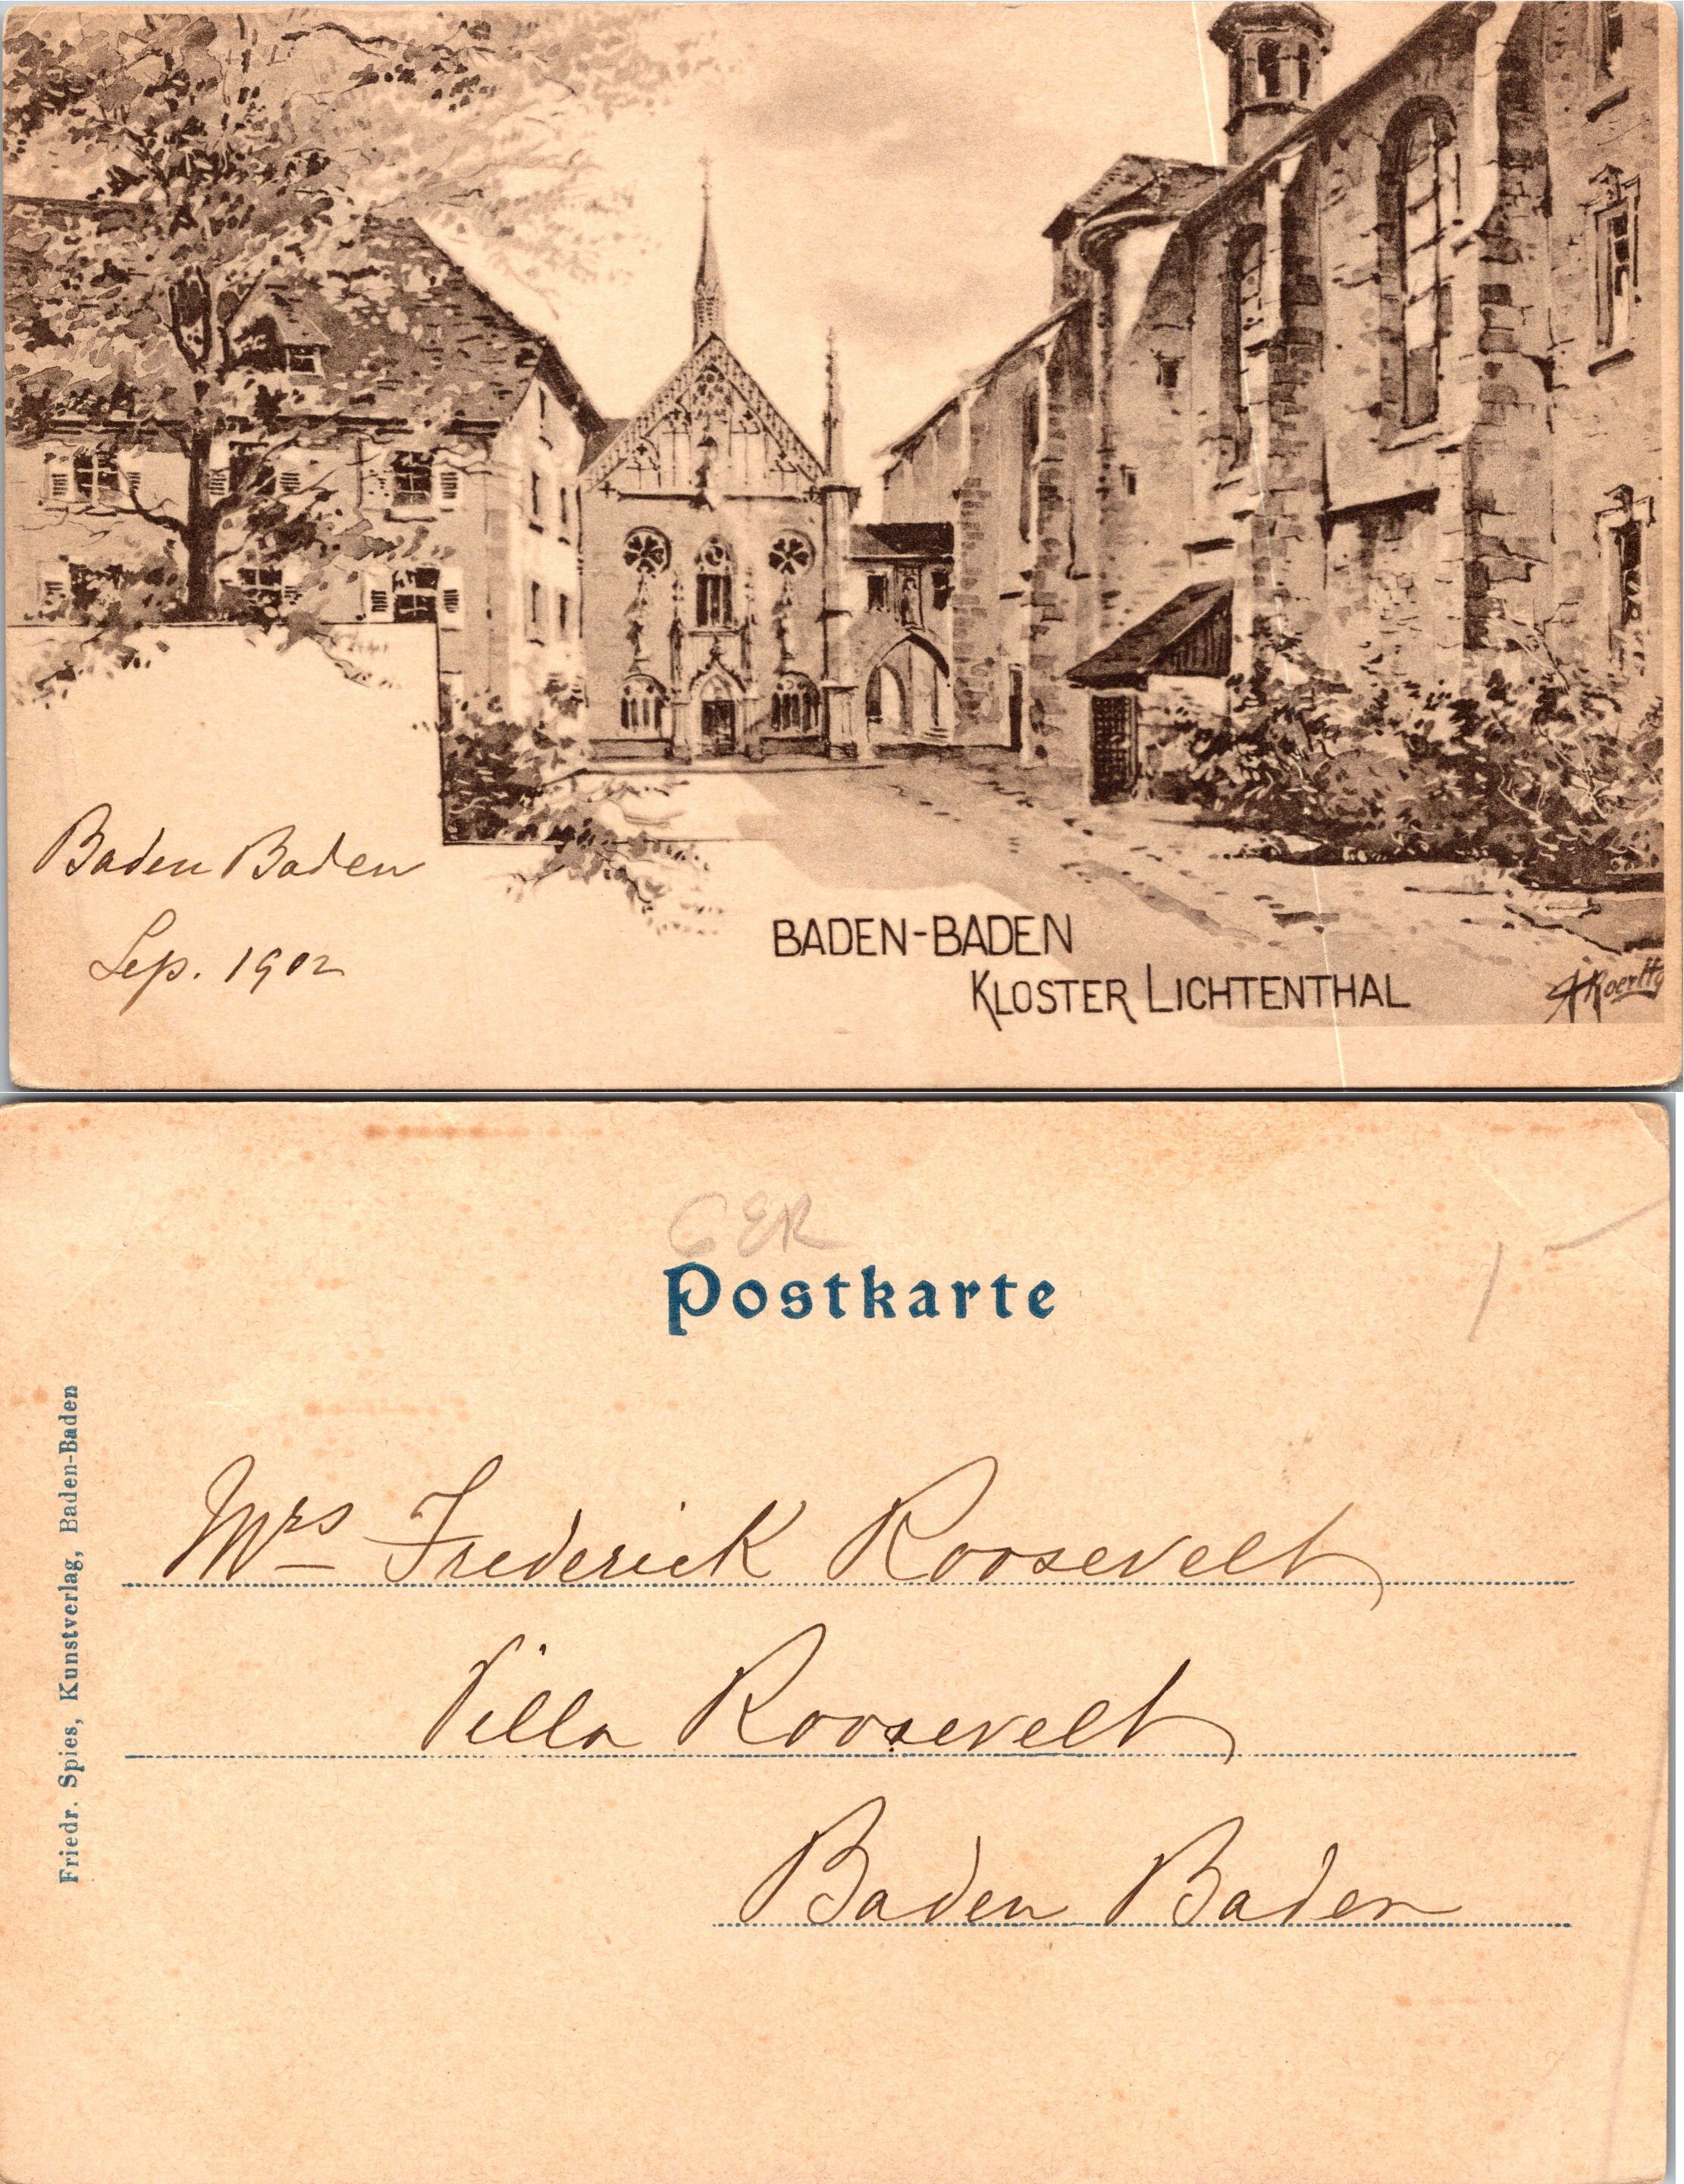 Baden Baden
Sep. 1902
BADEN-BADEN
KLOSTER LICHTENTHAL
GER
Postkarte
1 -
Friedr. Spies, Kunstverlag, Baden-Baden
Mrs Frederick Roosevelt
Villa Roosevelt
Baden Baden